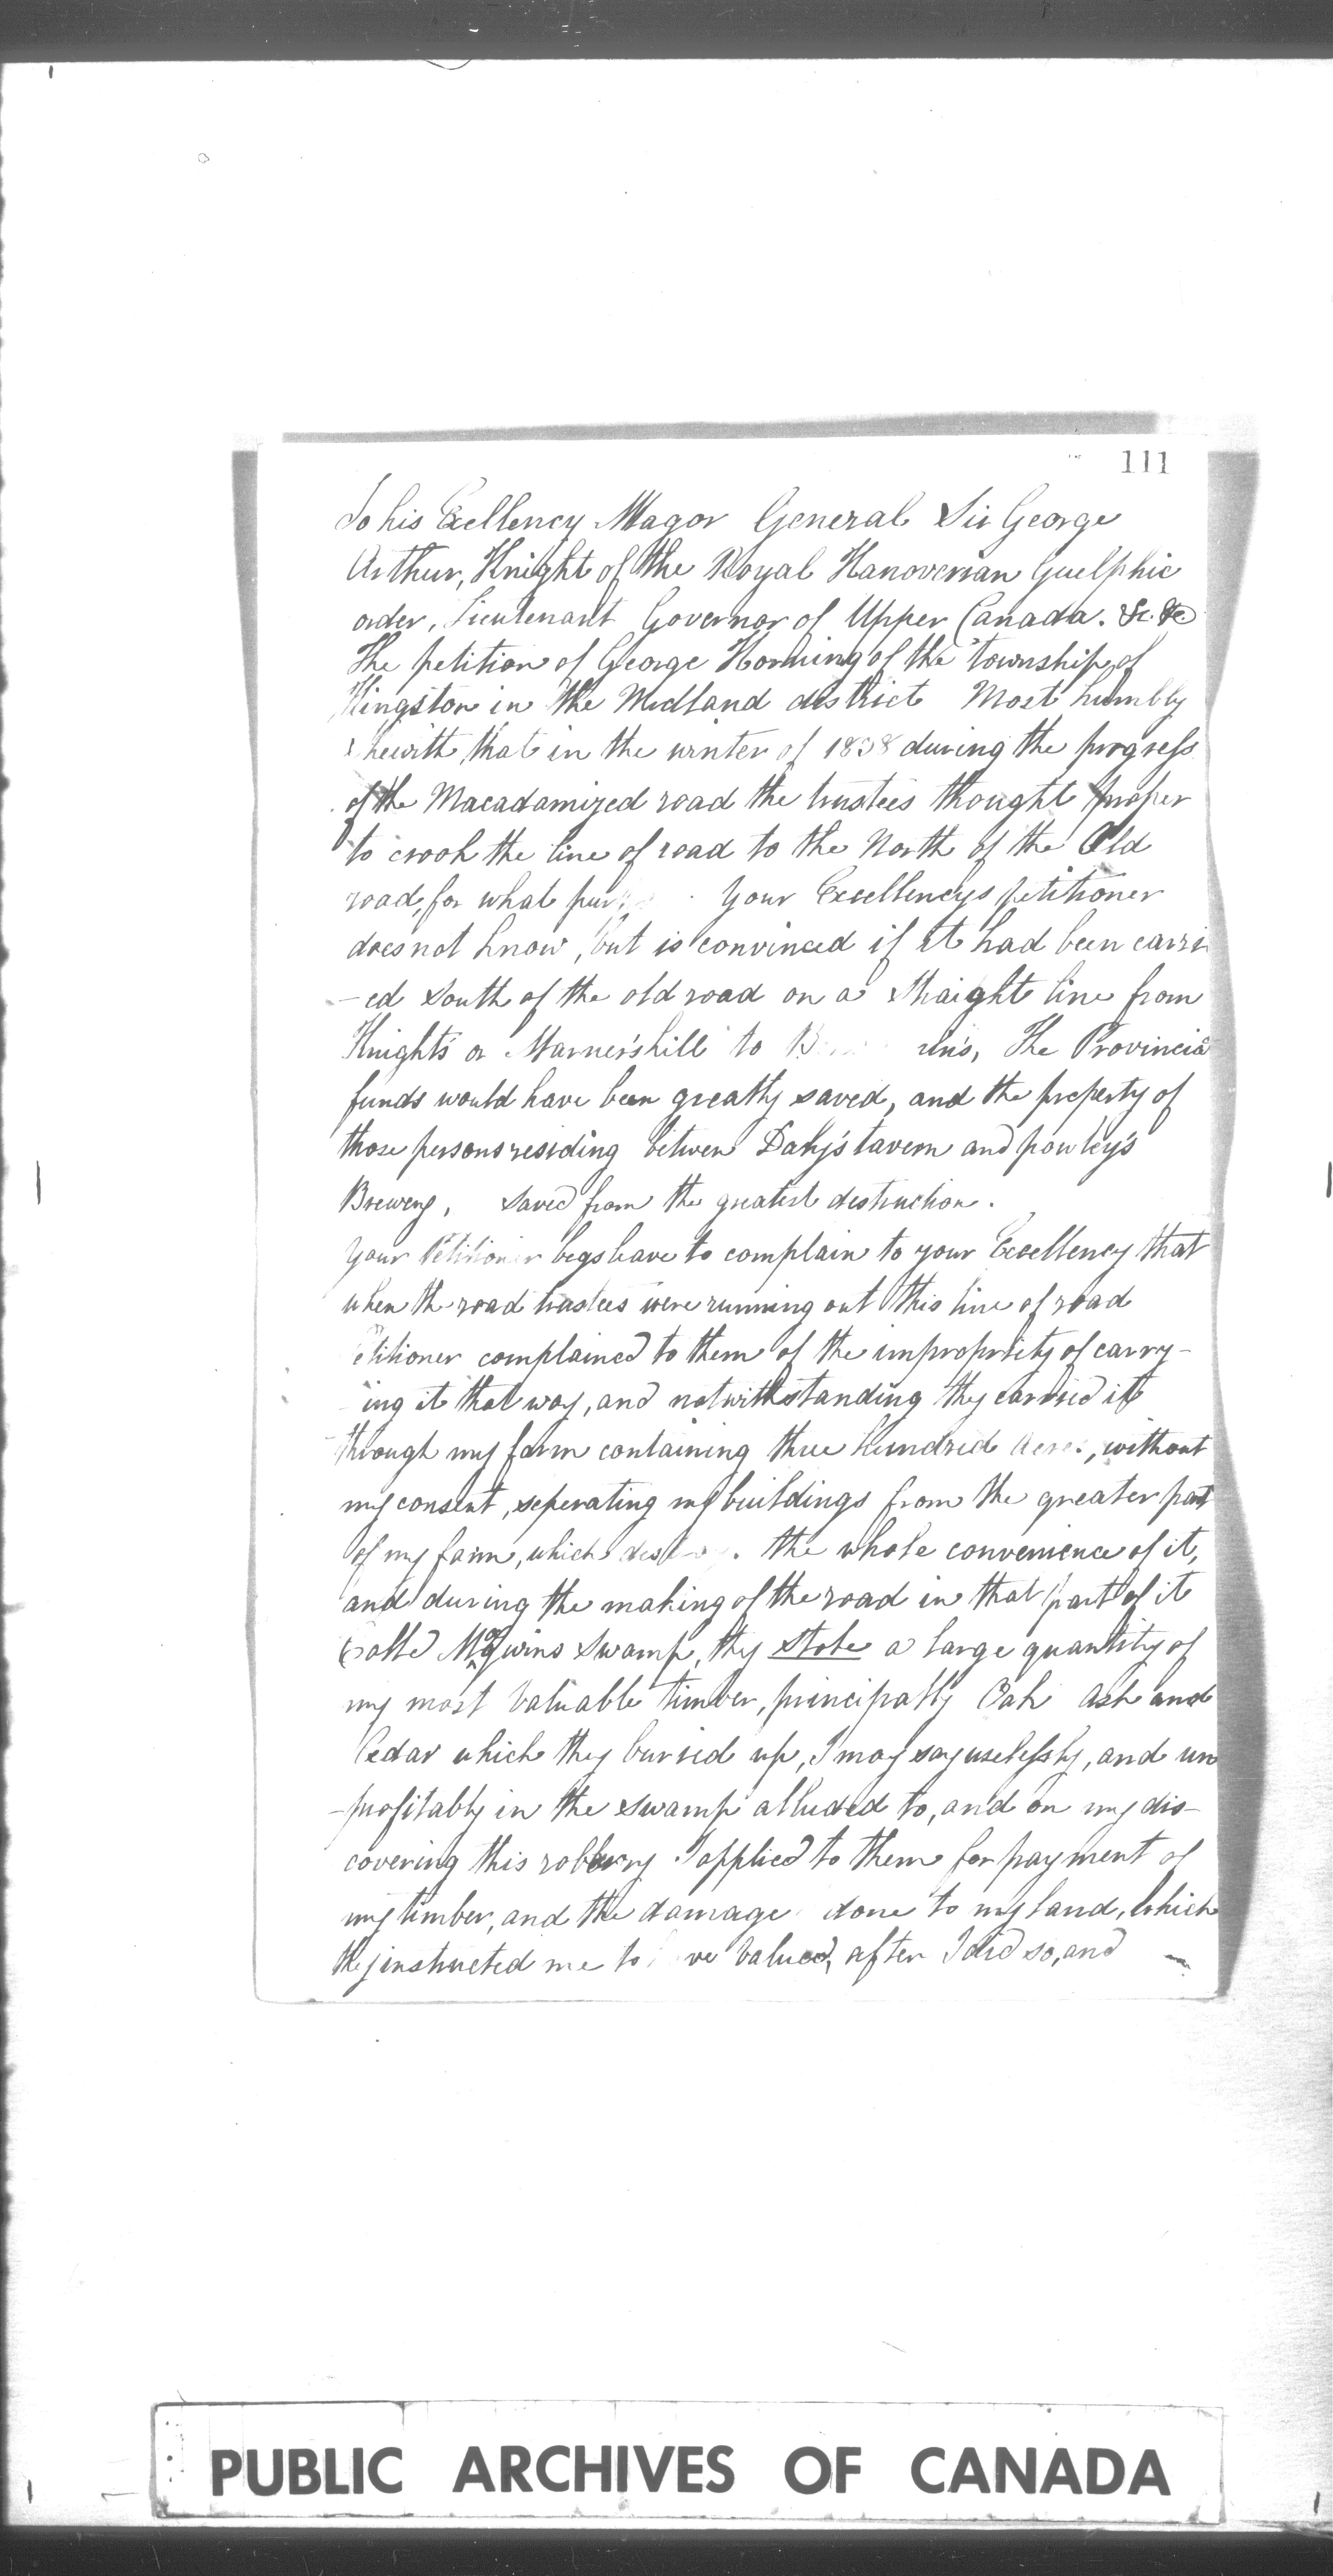 111
To his Excellency Magor General Sir George
Arthur, Knight of the Royal Hanoverian Guelphic
order, Lieutenant Governor of Upper Canada. &c. &c
The petition of George of the township of
Kingston in the Midland district Most humbly
hewith that in the winter of 1838 during the progress
of the Macadamized road the trustees thought proper
to crook the line of road to the North of the Old
road, for what pur your Excellencys petitioner
does not know, but is convinced if it had been carri
-ed South of the old road on a straight line from
Knights or hill to The Provincial
funds would have been greatly saved, and the property of
those persons residing between tavern and powley's
Brewery, saved from the greatest destruction.
your Petitioner begs leave to complain to your Excellency that
when the road trustees were running out this line of road
etitioner complained to them of the improprity of carry-
ing it that way, and notwithstanding they carried it
through my farm containing three hundred Acres, without
my consent, seperating my buildings from the greater part
of my farm, which the whole convenience of it,
and during the making of the road in that part of it
swamp, they stole a large quantity of
my most valuable timber, principally Oak Ash and
Cedar which they buried up, I may say uselessly, and un
-profitably in the swamp alluded to, and on my dis-
covering this robbery I applied to them for payment of
my timber, and the damage done to my land, which
they instructed me to ve valued, after I did so, and
PUBLIC ARCHIVES OF CANADA